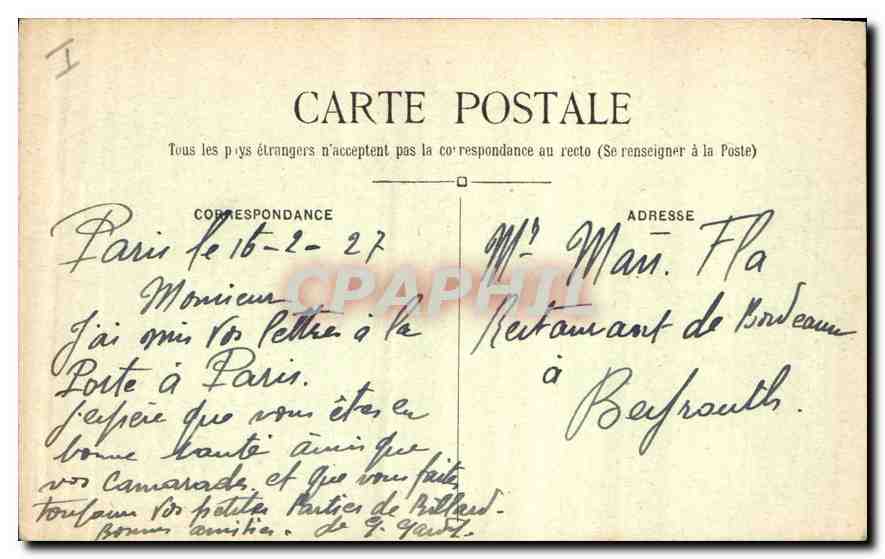 I
CARTE POSTALE
Tous les pays étrangers n'acceptent pas la correspondance au recto (Se renseigner à la Poste)
CORRESPONDANCE
Paris le 16-2-27
Monsieur
J'ai mis vos lettres à la
Poste à Paris.
j'espère que vous êtes en
bonne santé ainsi que
vos camarades. et que vous faites
toujours vos petites Parties de Billard.
Bonnes amitiés. de G.
ADRESSE
Mr. Fla
Restaurant de Bordeaux
à
Beyrouth.
CPAPHIL